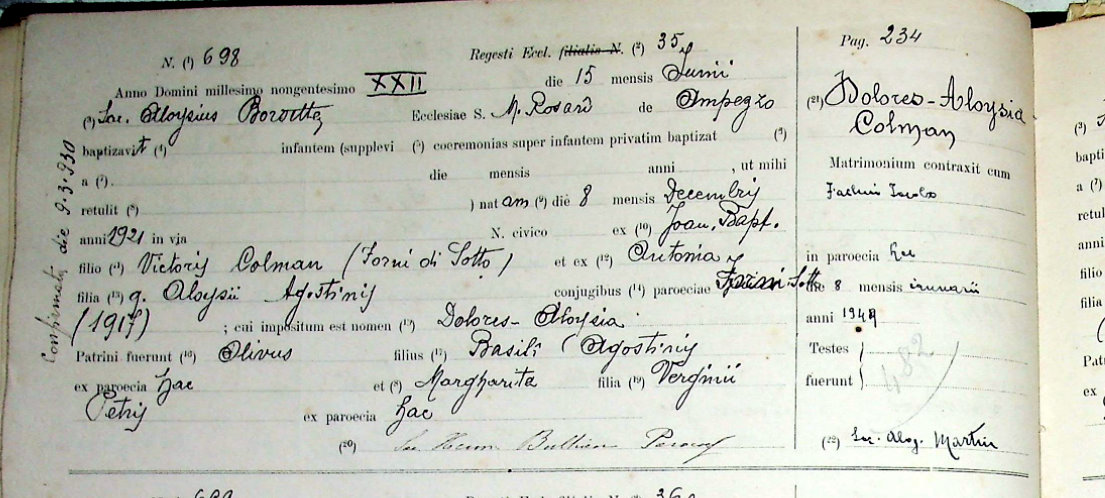 N. (¹) 698
Regesti Eccl. filialis N. (²) 35
Anno Domini millesimo nongentesimo XXII die 15 mensis Junii
(³) Sac. Aloysius Ecclesiae S. M. Rosarii de Ampezzo
baptizavit (⁴) infantem (supplevi (⁵) coeremonias super infantem privatim baptizat (⁶)
a (⁷). die mensis anni , ut mihi
retulit (⁸) ) natam (⁹) die 8 mensis Decembris
anni 1921 in via N. civico ex (¹⁰) Joan. Bapt.
filio (¹¹) Victoris Colman (Forni di Sotto) et ex (¹²) Antonia
filia (¹³) q. Aloysii Agostinis conjugibus (¹⁴) paroeciae Forni Sotto
(1917) ; cui impositum est nomen (¹⁵) Dolores-Aloysia
Patrini fuerunt (¹⁶) Olivus filius (¹⁷) Basili Agostinis
ex paroecia hac et (¹⁸) Margharita filia (¹⁹) Verginii
Petris ex paroecia hac
(²⁰) Sac.
Confirmata die 9-3-930
Pag. 234
(²¹) Dolores-Aloysia
Colman
Matrimonium contraxit cum
in paroecia hac
die 8 mensis ianuarii
anni 1949
Testes
fuerunt
482
(²²) Sac. Aloy. Martin
(³)
bapti
a (⁷)
retul
anni
filio
filia
Patr
ex